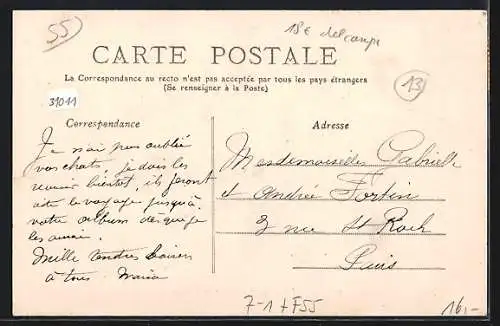 55
18€ delcampe
CARTE POSTALE
La Correspondance au recto n'est pas acceptée par tous les pays étrangers
(Se renseigner à la Poste)
13
31011
Correspondance
Adresse
Je n'ai pas oublié
vos chats, je dois les
revoir bientôt, ils feront
vite le voyage jusqu'à
votre album dès que je
les aurai.
Mille tendres baisers
à tous Maria
Mesdemoiselles Gabrielle
et Andrée Fortin
3 rue St Roch
Paris
7-1+F55
16,-